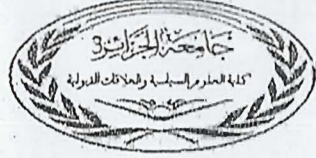 جامعة الجزائر 3
كلية العلوم السياسية والعلاقات الدولية